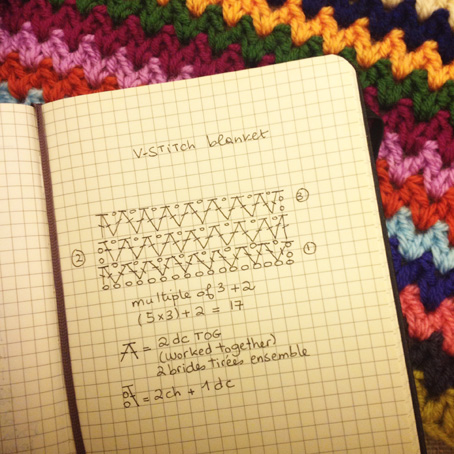 V-STITCH blanket
3
2
1
multiple of 3 + 2
(5x3) + 2 = 17
= 2 dc TOG
(worked together)
2 brides tirées ensemble
= 2ch + 1 dc